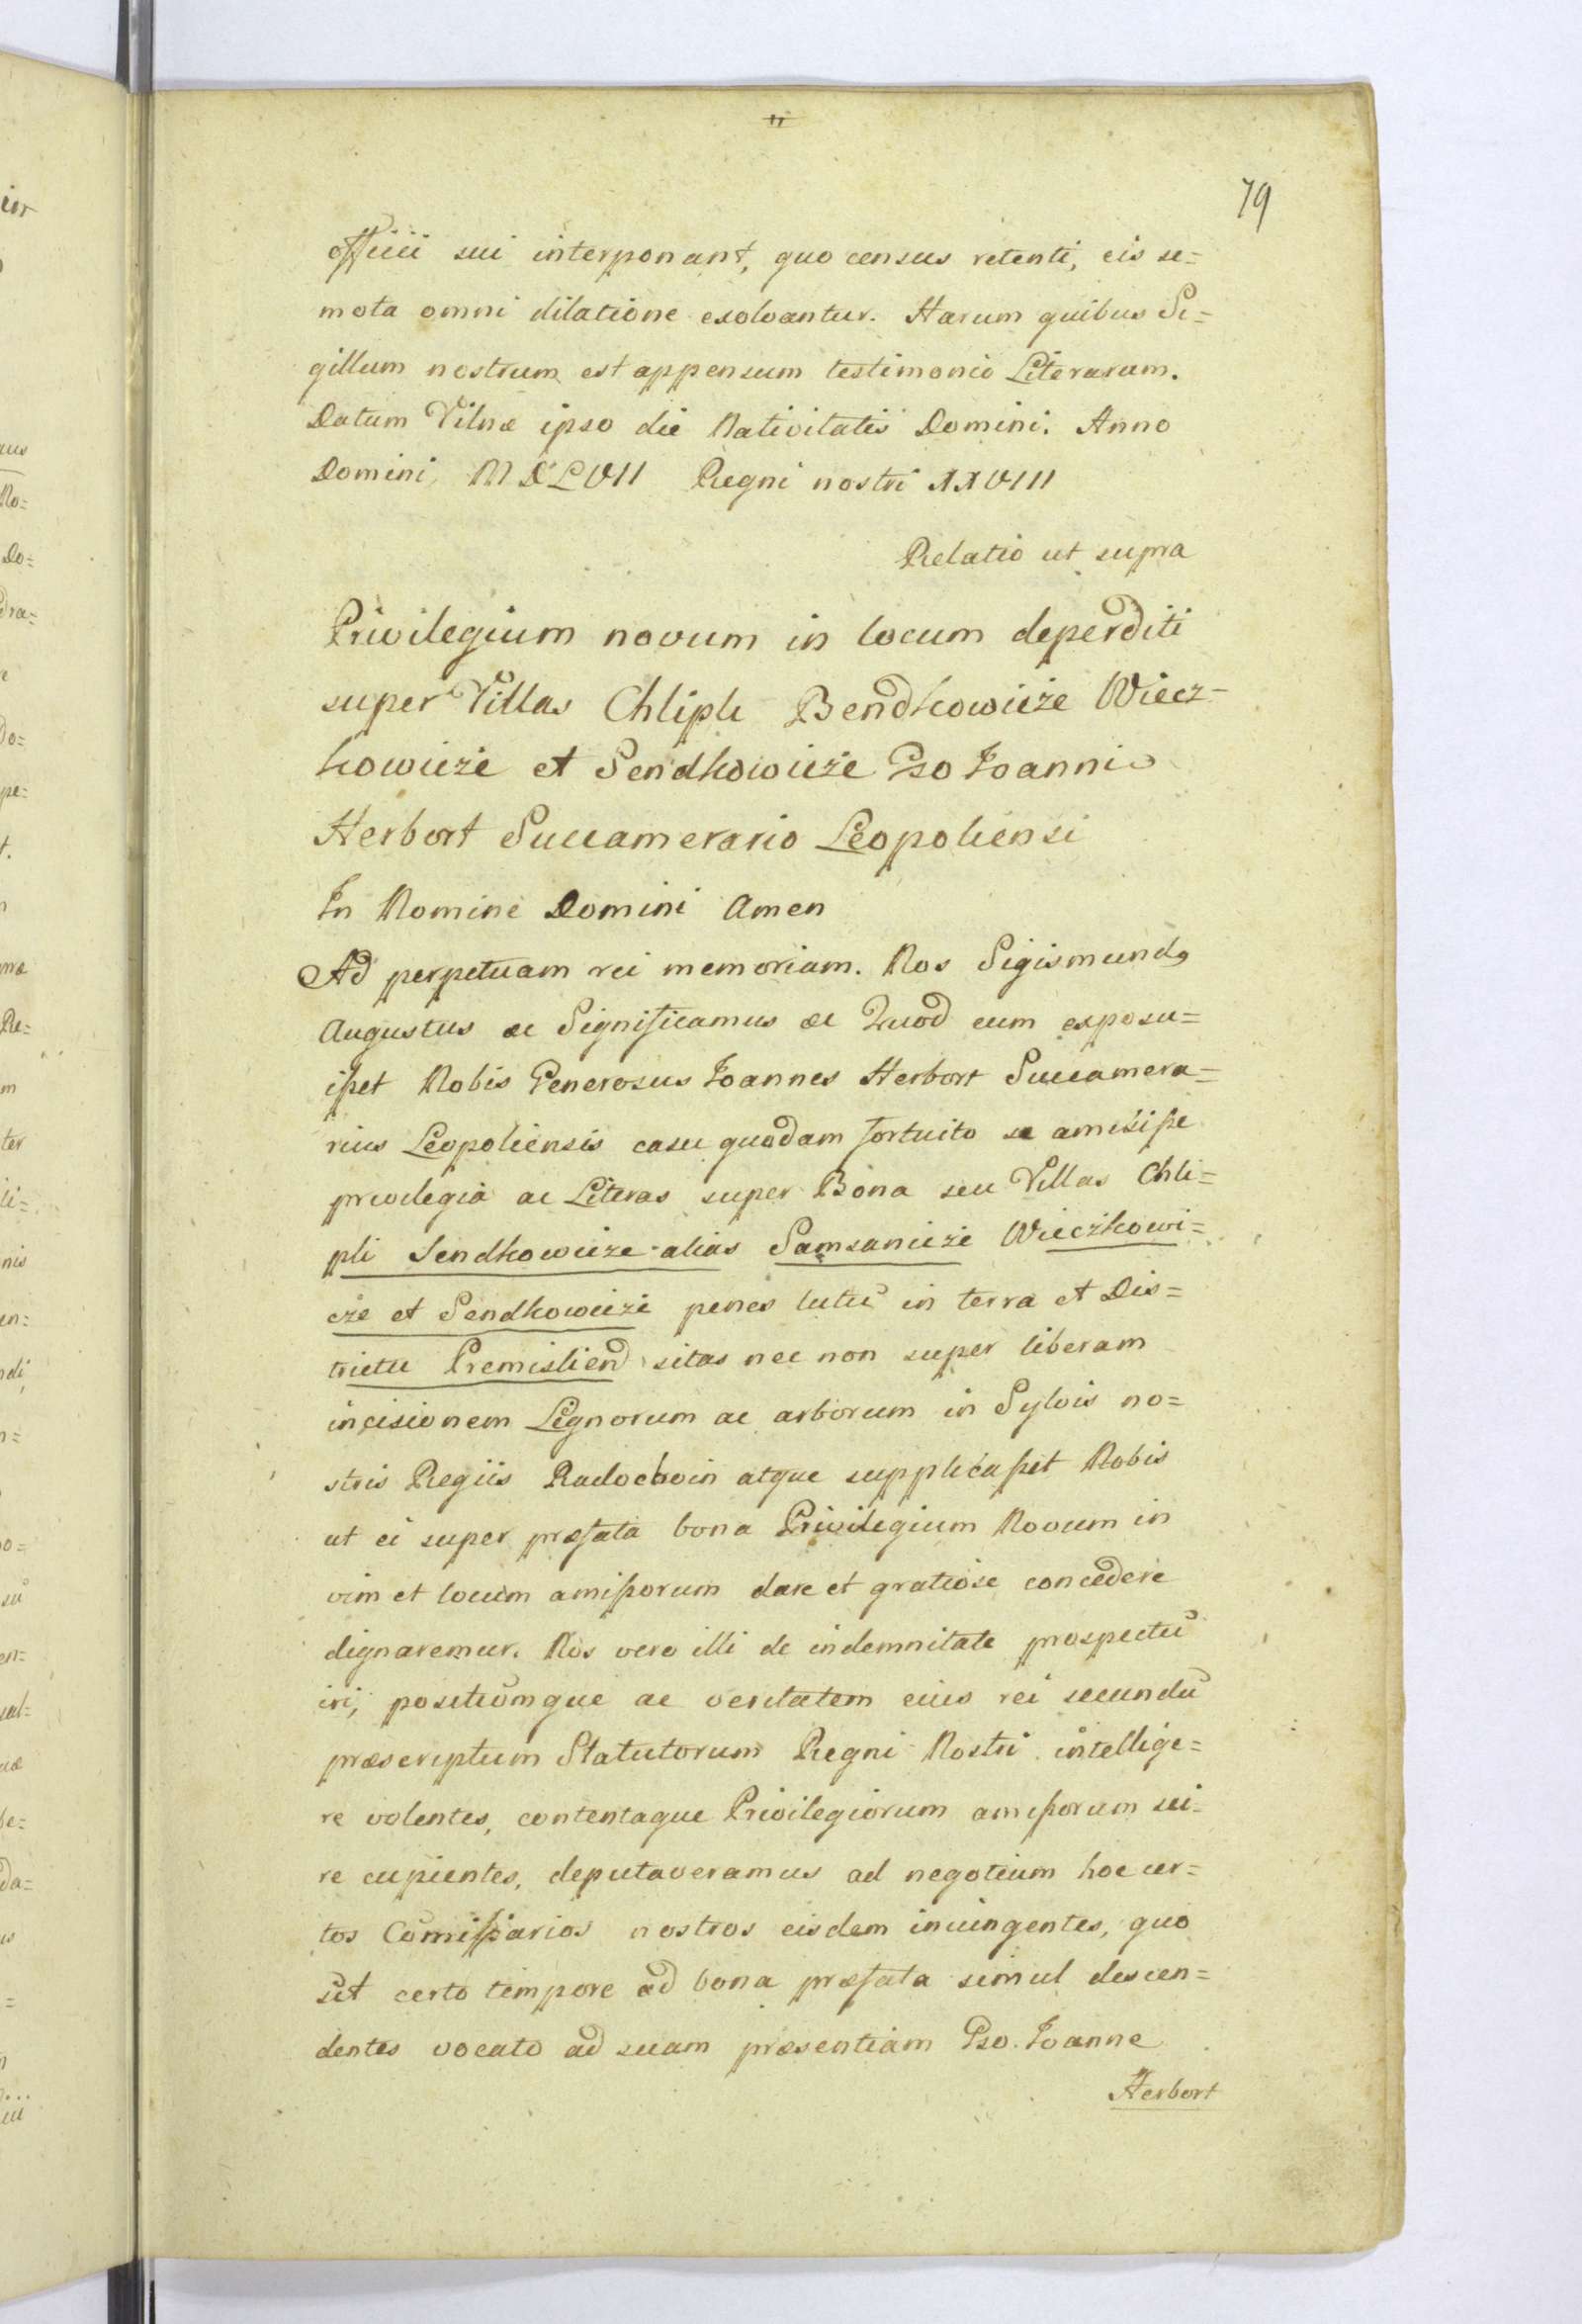 79
officii sui interponant, quo census retenti, eis se=
mota omni dilatione exolvantur. Harum quibus Si=
gillum nostrum est appensum testimonio Literarum.
Datum Vilnæ ipso die Nativitatis Domini. Anno
Domini MDLVII Regni nostri XXVIII
Relatio ut supra
Privilegium novum in locum deperditi
super Villas Chlipli Bendkowicze Wiecz=
kowicze et Sendkowicze Gso Joanni
Herbort Succamerario Leopoliensi
In Nomine Domini Amen
Ad perpetuam rei memoriam. Nos Sigismundq
Augustus ec Significamus ec Quod cum exposu=
ißet Nobis Generosus Joannes Herbort Succamera=
rius Leopoliensis casu quodam fortuito se amisiße
privilegia ac Literas super Bona seu Villas Chli=
pli Sendkowicze alias Samsanicze Wieczkowi=
cze et Sendkowicze penes lutu in terra et Dis=
trictu Premislien sitas nec non super liberam
incisionem Lignorum ac arborum in Sylvis no=
stris Regiis Radochoin atque supplicaßet Nobis
ut ei super præfata bona Privilegium Novum in
vim et locum amißorum dare et gratiose concedere
dignaremur. Nos vero illi de indemnitate prospectu
iri, positiomque ac veritatem eius rei secundu
præscriptum Statutorum Regni Nostri intellige=
re volentes, contentaque Privilegiorum amißorum sci=
re cupientes, deputaveramus ad negotium hoc cer=
tos Comißarios nostros eisdem iniungentes, quo
sit certo tempore ad bona præfata simul descen=
dentes vocato ad suam præsentiam Gso. Joanne
Herbort